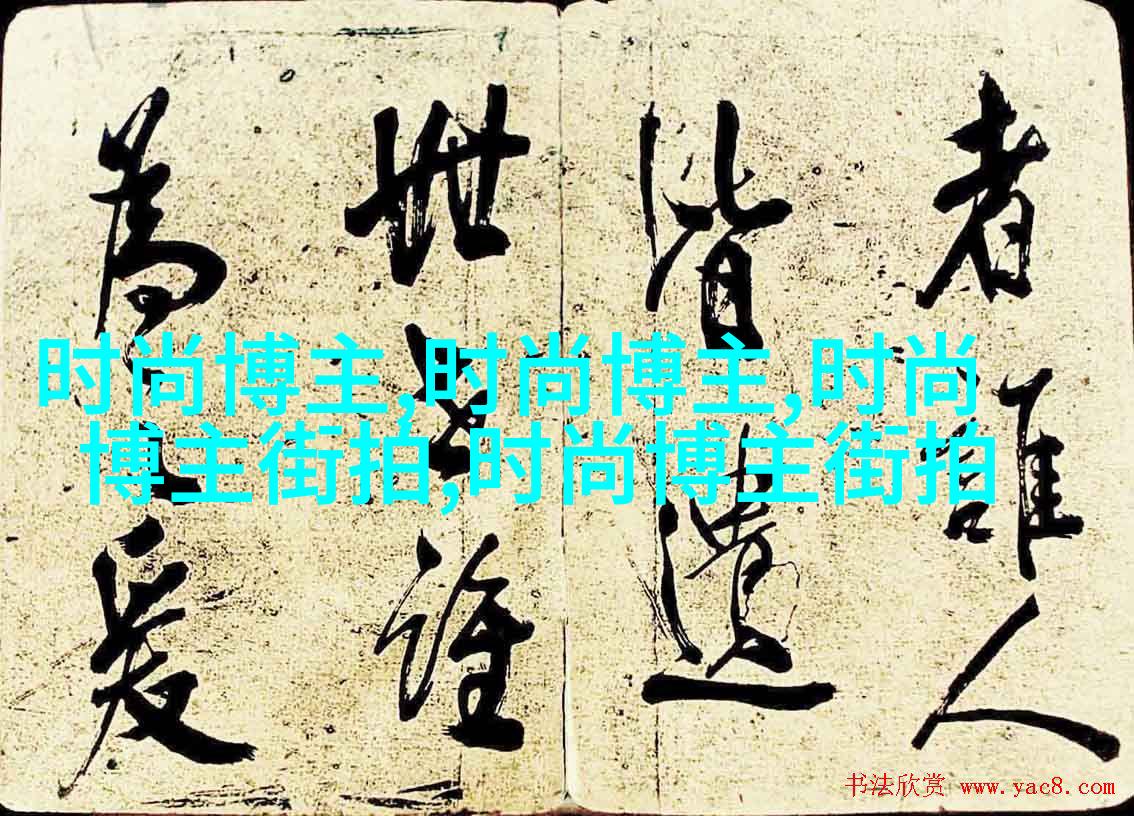 者誰人
皆遺
世誰
為
时尚博主,时尚博主,时尚
博主街拍,时尚博主街拍
书法欣赏 www.yac8.com